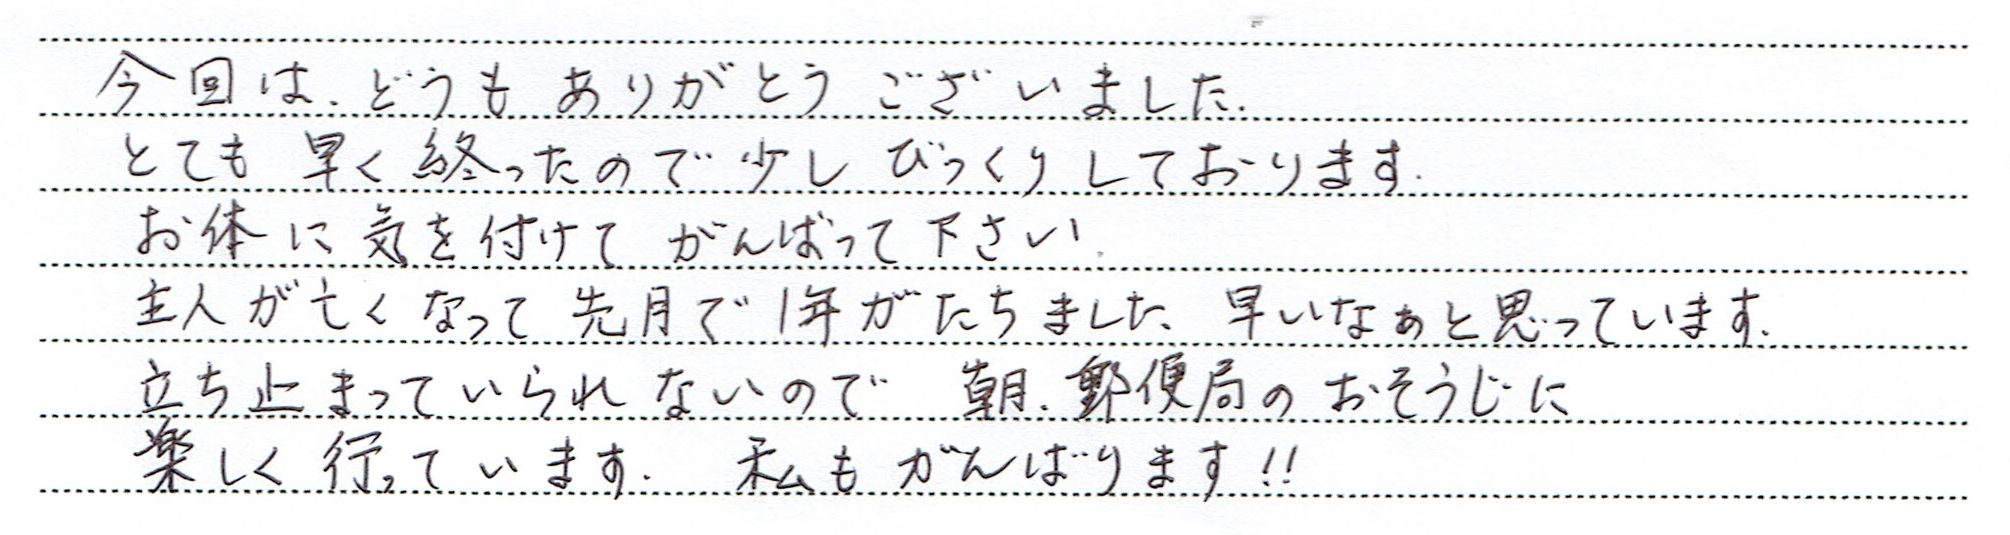 今回は、どうもありがとうございました.
とても早く終ったので少しびっくりしております.
お体に気を付けてがんばって下さい.
主人が亡くなって先月で1年がたちました、早いなぁと思っています.
立ち止まっていられないので朝、郵便局のおそうじに
楽しく行っています.私もがんばります!!